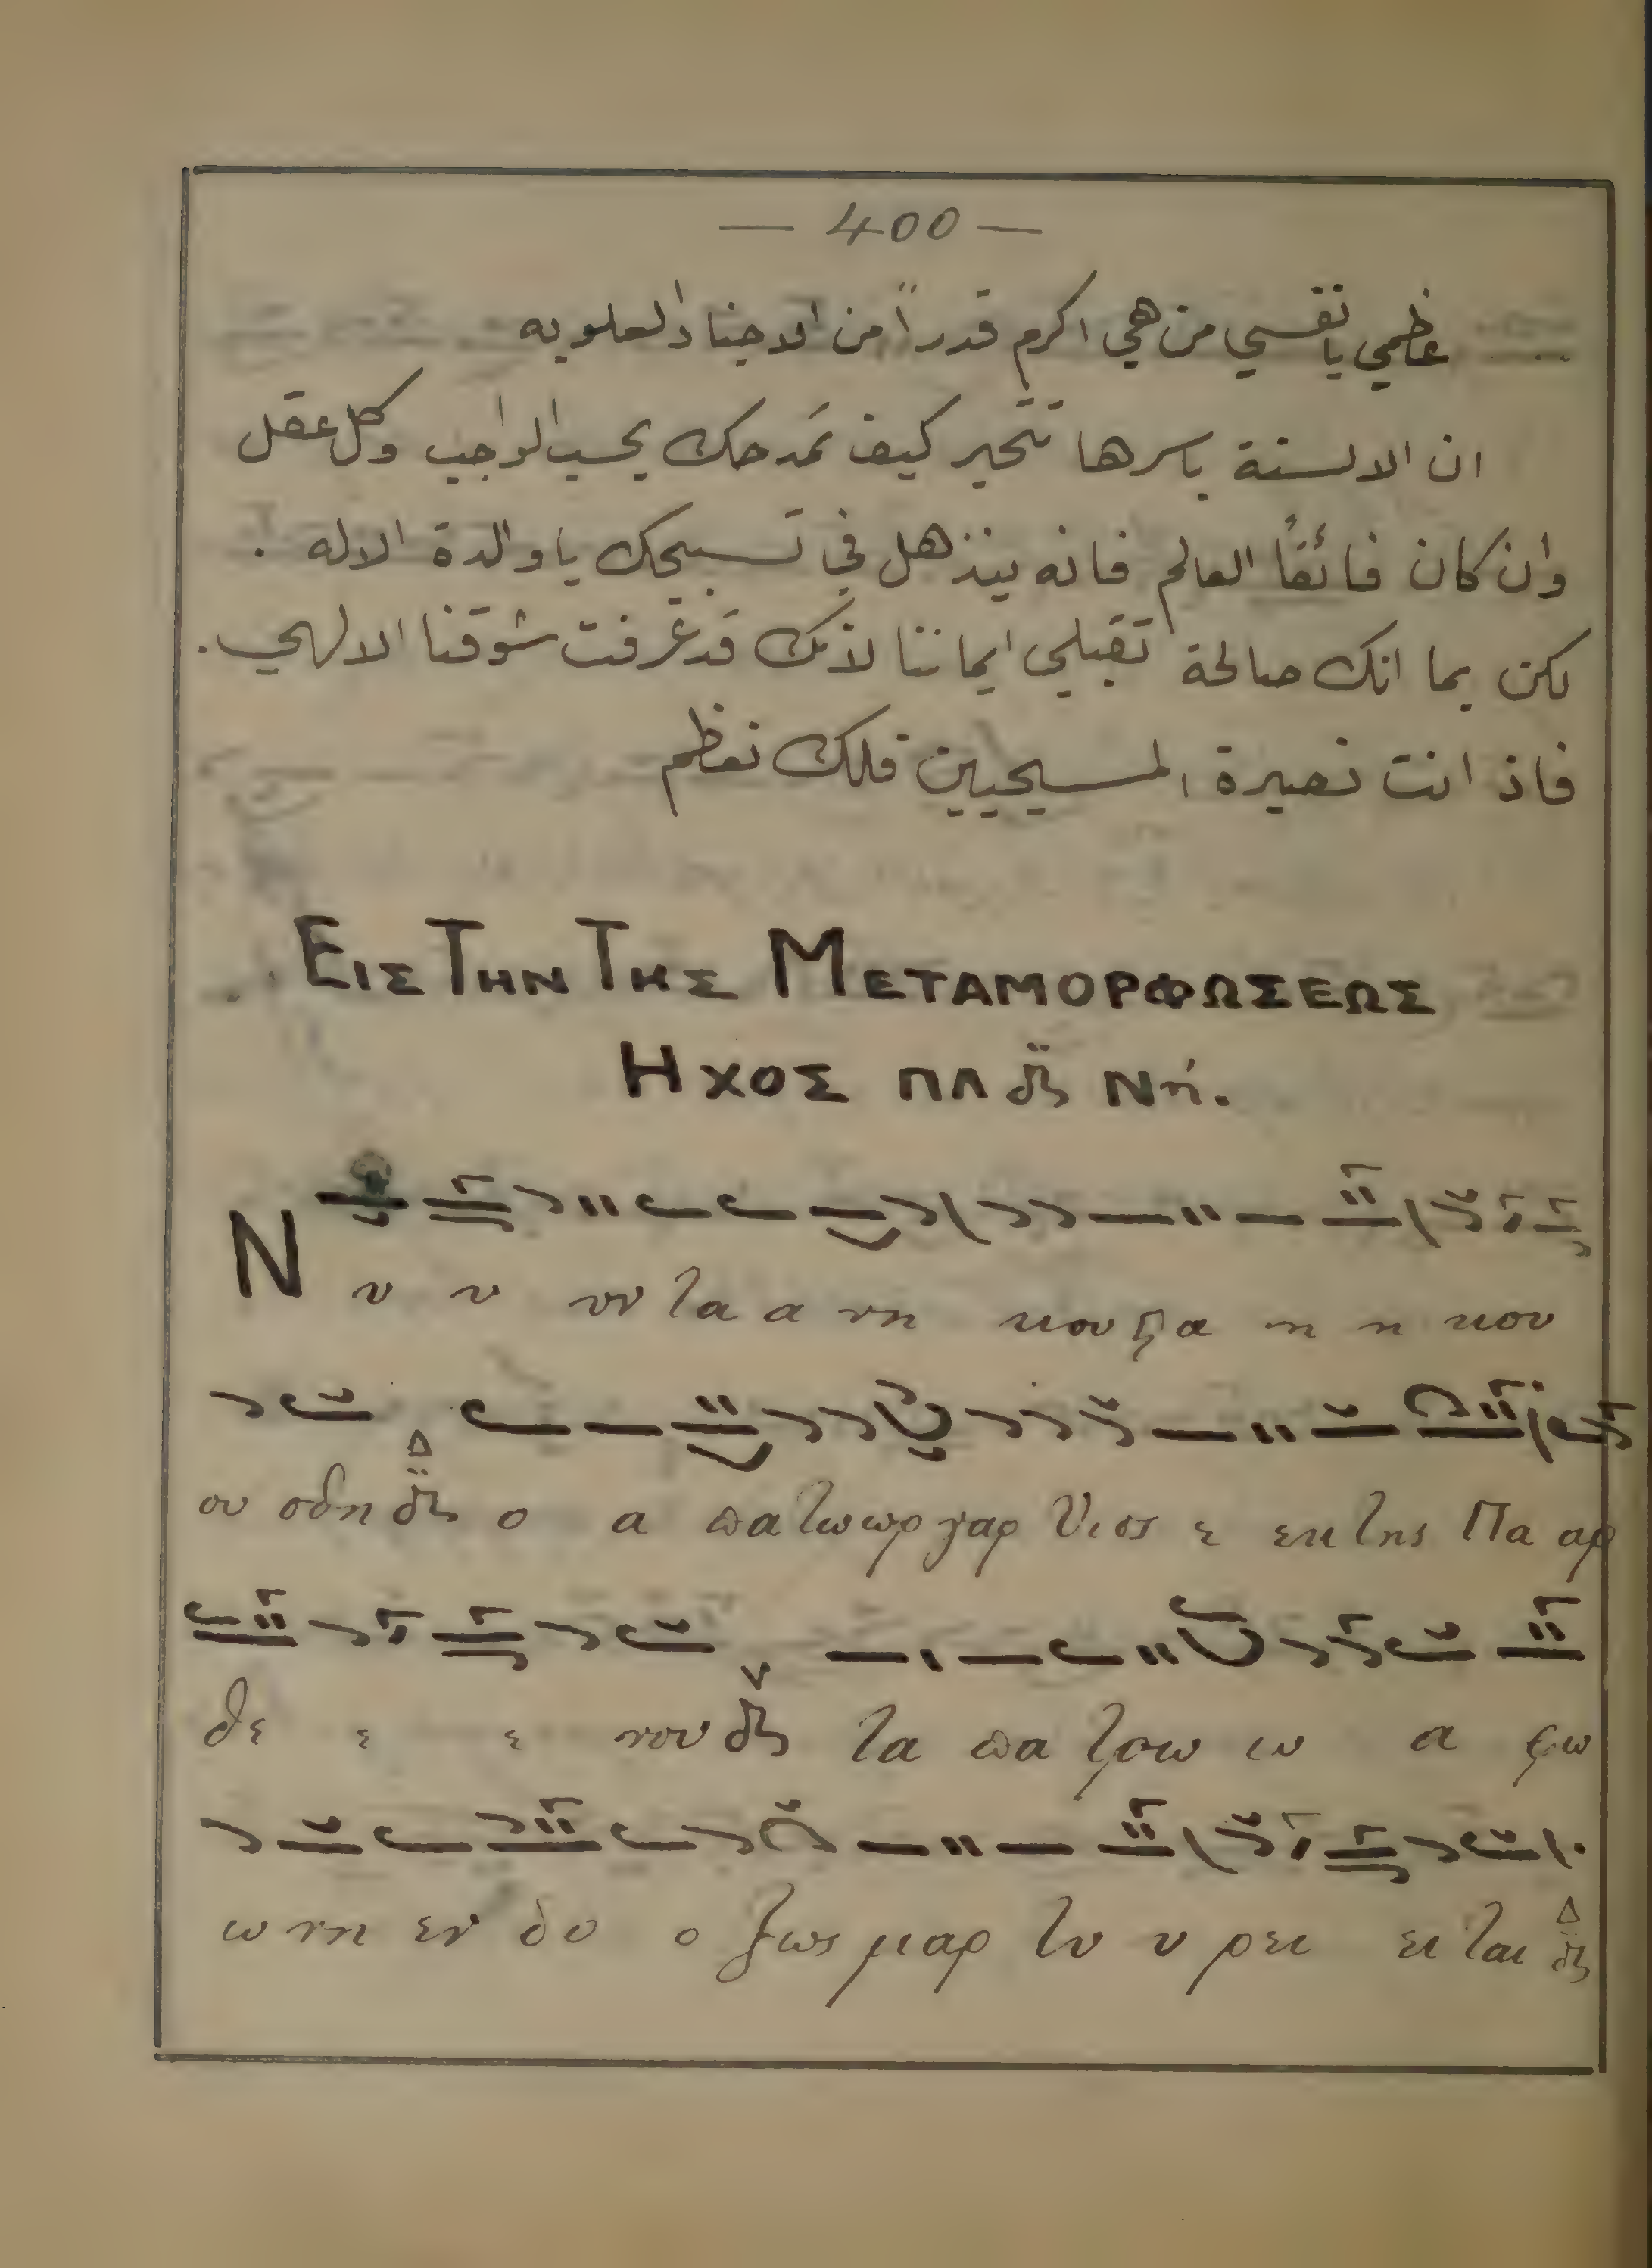 — 400 —
عظمي يا نفسي من هي اكرم قدراً من الاجناد العلويه
ان الالسنة باسرها تتحير كيف تمدحك بحسب الواجب وكل عقل
وان كان فائقاً العالم فانه ينذهل في تسبيحك يا والدة الاله .
لكن بما انك صالحة تقبلي ايماننا لانك قد عرفت شوقنا الالهي .
فاذ انت نصيرة المسيحيين فلك نعظم
ΕΙΣ ΤΗΝ ΤΗΣ ΜΕΤΑΜΟΡΦΩΣΕΩΣ
ΗΧΟΣ ΠΛ δ̈ς Νη.
Ν υ υ υν τα α νη κου ϛα η η κου
ου σθη ο α πα τωωρ γαρ Υιος ε εκ της Πα αρ
θε ε ε νου τα πα τρω ω α φω
ω νη εν δο ο ξως μαρ τυ υ ρει ει ται